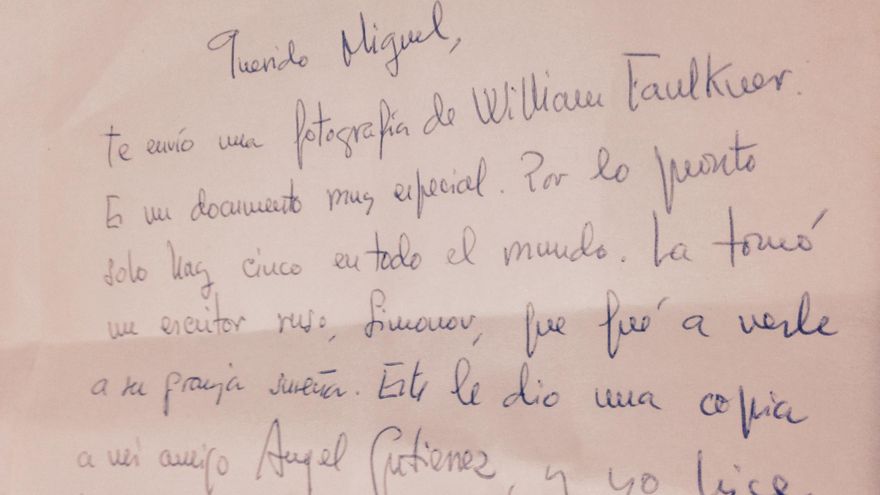 Querido Miguel,
te envío una fotografía de William Faulkner.
Es un documento muy especial. Por lo pronto
solo hay cinco en todo el mundo. La tomó
un escritor ruso, Simonov, que fué a verle
a su granja sureña. Este le dio una copia
a mi amigo Angel Gutierrez, y yo hice